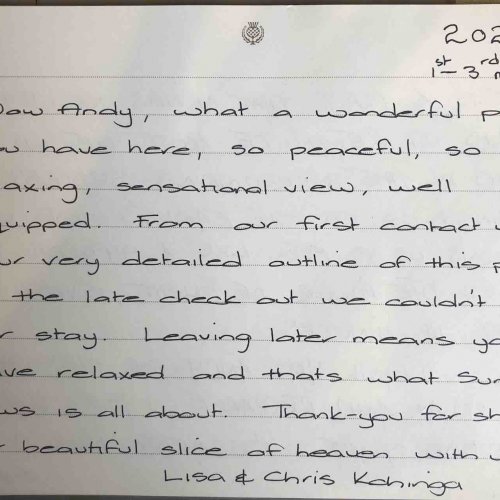 202
1st - 3rd
Wow Andy, what a wonderful p
you have here, so peaceful, so
laxing, sensational view, well
quipped. From our first contact w
our very detailed outline of this p
the late check out we couldn't
r stay. Leaving later means yo
ave relaxed and thats what Sun
ws is all about. Thank-you for sh
r beautiful slice of heaven with u
Lisa & Chris Kohinga